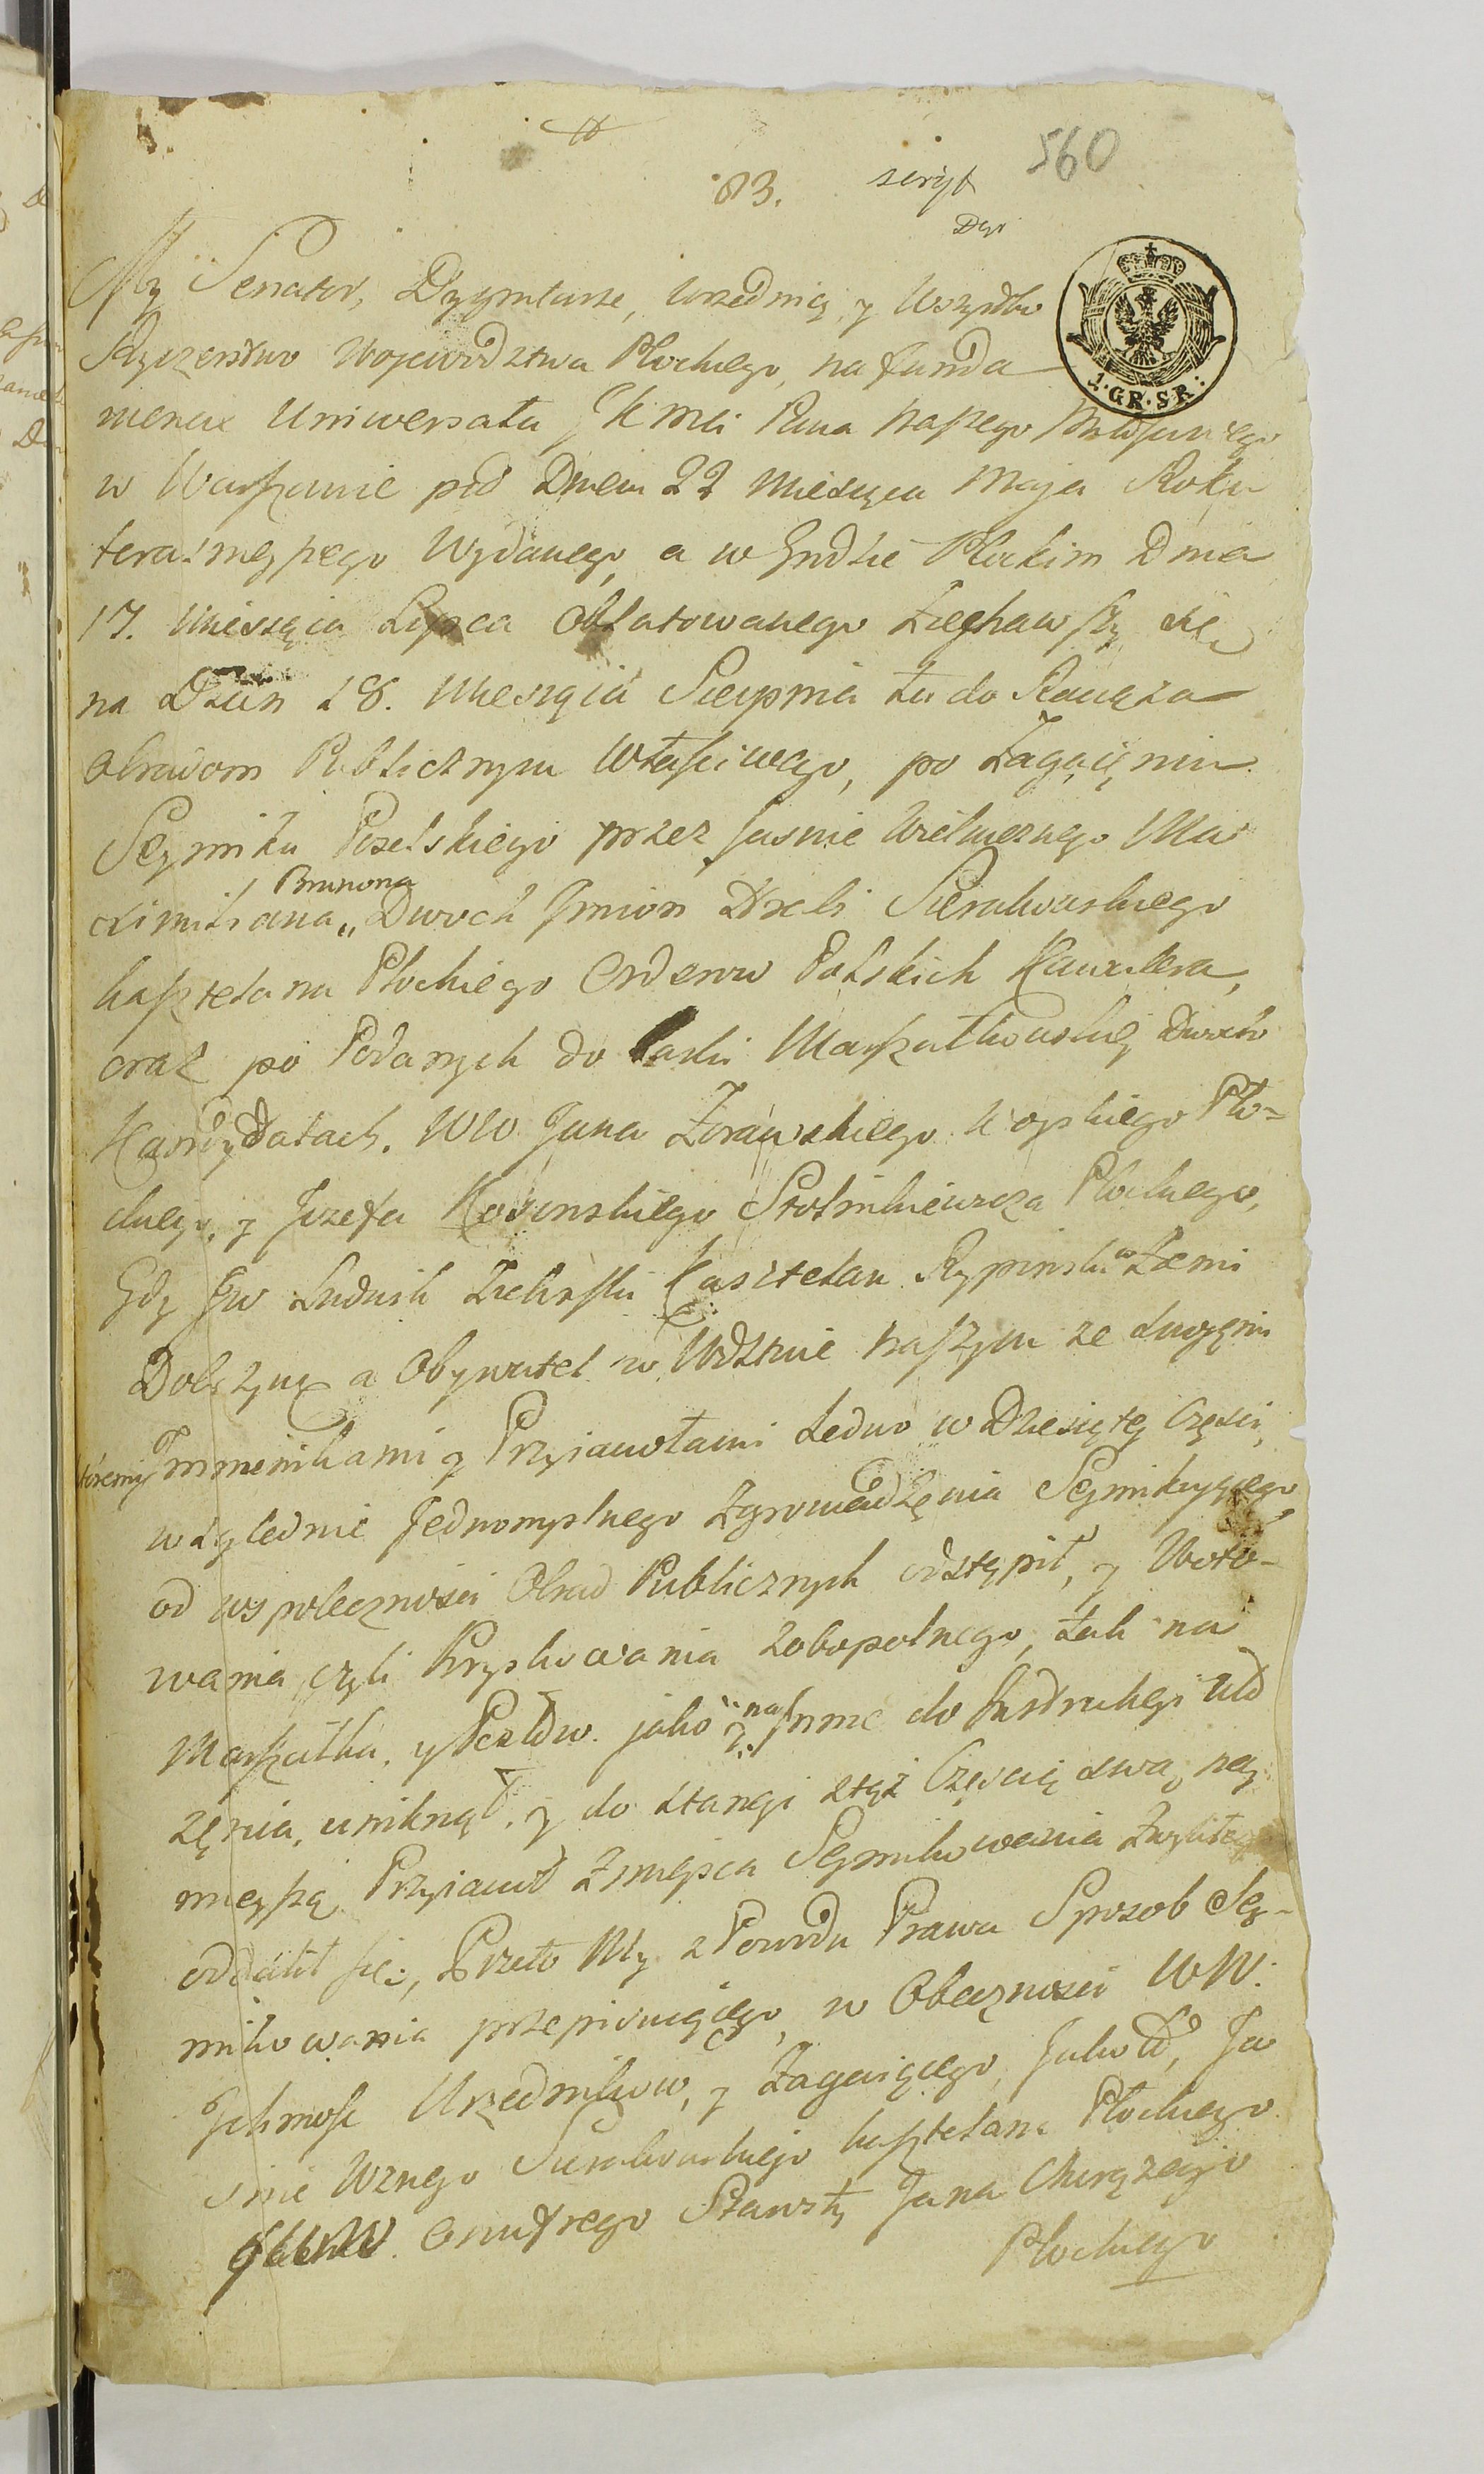 83. scryp 560
My Senator, Dygnitarze, Urzędnicy, y Wszystko
Rycerstwo Wojewodztwa Płockiego, na funda
1.GR.SR:
mencie Uniwersału JK Mci Pana naszego Miłościwego
w Warszawie pod Dniem 22 Miesiąca Maja Roku
teraznieyszego Wydanego, a w Grodzie Płockim Dnia
17. Miesiąca Lipca Oblatowanego Ziechawszy się
na Dzien 18. Miesiąca Sierpnia tu do Raciąża
Obradom Publicznym właściwego, po Zagaięniu
Seymiku Poselskiego przez Jasnie Wielmoznego Ma
Brunona
ximiliana„ Dwoch Jmion Hrabi Sierakowskiego
kasztelana Płockiego Orderow Polskich Kawalera,
oraz po Podanych do Laski Marszałkowskiej Dwoch
Kandydatach. WW Jana Zorawskiego Woyskiego Pło-
ckiego, y Jozefa Kosinskiego Stolnikiewicza Płockiego,
Gdy JW Ludwik Zielinski Kasztelan Rypinski w Ziemi
Dobrzyn: a Obywatel w Wdztwie naszym ze swoięmi
Imiennikami y Przyiaciołami Ledwo w Dziesiątey Częsci,
względnie Jednomyslnego Zgromadzęnia Seymikuiącego
od wspołecznosci Obrad Publicznych odstąpił, y Woto-
wania, czyli Kryskowania zobopolnego, tak na
Marszałka, y Posłow. jako y na Jnne do Jnstrukcyi Uło
zęnia, uniknął, y do Stancyi z tąż Częscią swą, nay
mnieyszą Przyiacioł z mieysca Seymikowania Zwykłego
oddalił się:, Przeto My z Powodu Prawa Sposob Sey-
mikowania przepisuiącego, w Obecznosci WW:
Jchmosc Urzednikow, y Zagaiącego, Jako to, Ja
snie Wznego Sierakowskiego kasztelana Płockiego
Onufrego Jana Chorązego
Płockiego